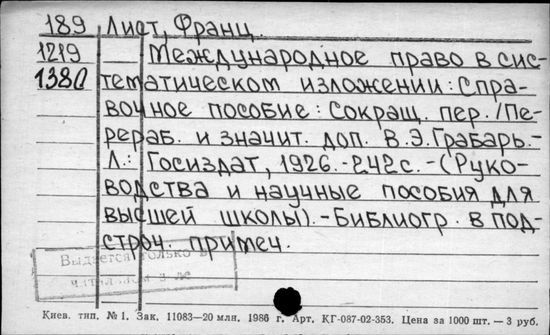 189 Лист, Франц.
1219 Международное право в сис-
1380 тематическом изложении: Спра-
вочное пособие: Сокращ. пер. /Пе-
рераб. и значит. доп. В.Э.Грабарь.-
Л.: Госиздат, 1926.-242с.-(Руко-
водства и научные пособия для
высшей школы).-Библиогр. в под-
строч. примеч.
Выдается только в
Киев. тип. №1. Зак. 11083—20 млн. 1986 г. Арт. КГ-087-02-353. Цена за 1000 шт. — 3 руб.